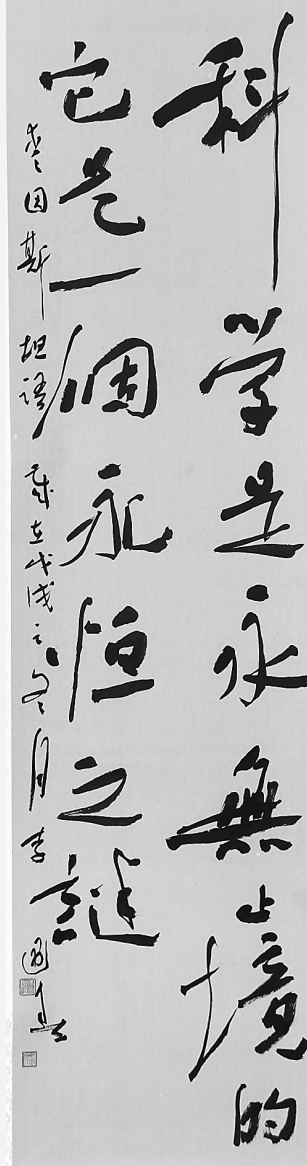 科学是永無止境的
它是一個永恒之謎
愛因斯坦語 歲在戊戌之冬月李國